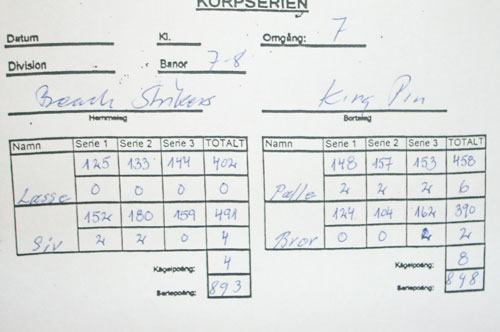 KORPSERIEN
Datum Kl. Omgång: 7
Division Banor 7-8
Beach Strikers King Pin
Hemmalag Bortalag
Namn Serie 1 Serie 2 Serie 3 TOTALT Namn Serie 1 Serie 2 Serie 3 TOTALT
125 133 144 402 148 157 153 458
Lasse 0 0 0 0 Palle 2 2 2 6
152 180 159 491 124 104 162 390
Siv 2 2 0 4 Bror 0 0 2 2
Kägelpoäng: 4 Kägelpoäng: 8
Seriepoäng: 893 Seriepoäng: 848